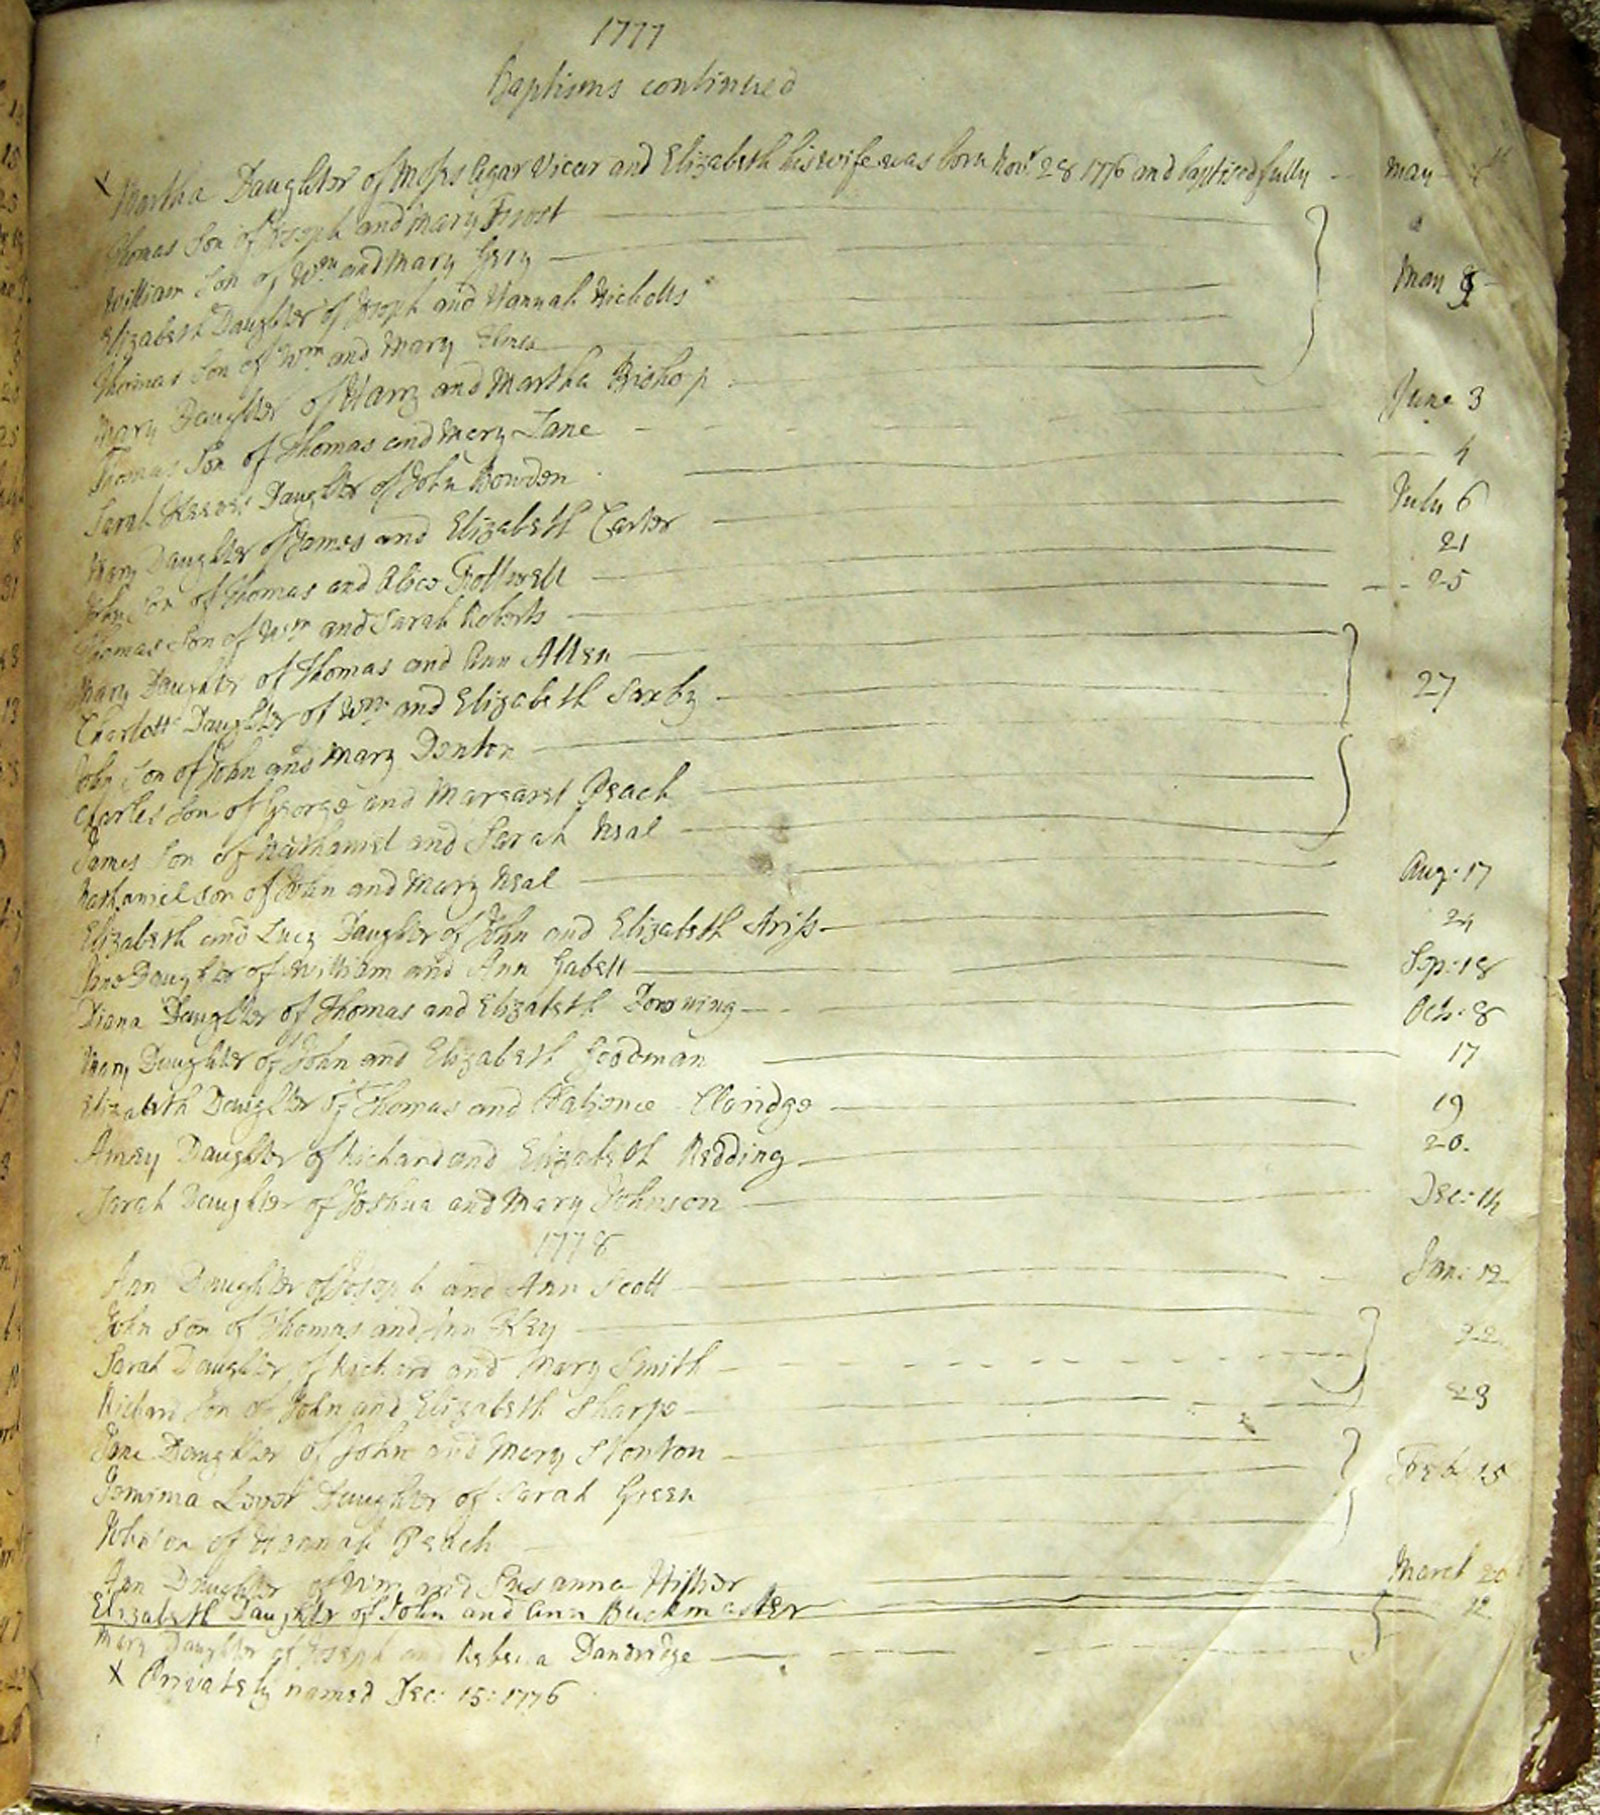 1777
Baptisms continued
x Martha Daughter of Moses Agar Vicar and Elizabeth his wife was born Novr. 28 1776 and baptised fully May 4th
Thomas Son of Joseph and Mary Frost
William Son of Wm and Mary Gery
Elizabeth Daughter of Joseph and Hannah Nicholls May 8
Thomas Son of Wm and Mary
Mary Daughter of Harry and Martha Bishop
Thomas Son of Thomas and Mary Lane June 3
Sarah Daughter of John Bowden 4
Mary Daughter of James and Elizabeth Carter July 6
John Son of Thomas and Alice Follwell 21
Thomas Son of Wm and Sarah Roberts 25
Mary Daughter of Thomas and Ann Allen
Charlott Daughter of Wm and Elizabeth Saxby 27
John Son of John and Mary Denton
Charles Son of George and Margaret Peach
James Son of Nathaniel and Sarah Neal
Nathaniel son of John and Mary Neal Aug: 17
Elizabeth and Lucy Daughter of John and Elizabeth Ariss 24
Jane Daughter of William and Ann Gabell Sep: 18
Diana Daughter of Thomas and Elizabeth Downing Oct: 8
Mary Daughter of John and Elizabeth Goodman 17
Elizabeth Daughter of Thomas and Patience Claridge 19
Amey Daughter of Richard and Elizabeth Redding 20.
Sarah Daughter of Joshua and Mary Johnson Dec: 14
1778
Ann Daughter of Joseph and Ann Scott Jan: 12
John Son of Thomas and Ann Key
Sarah Daughter of Richard and Mary Smith 22
Richard Son of John and Elizabeth Sharpe 23
Jane Daughter of John and Mary Stonton
Jemima Daughter of Sarah Green Feb: 15
John son of Hannah Peach
Ann Daughter of Wm and Susanna Hillier March 20
Elizabeth Daughter of John and Ann Buckmaster 22
Mary Daughter of Joseph and Rebecca Dandridge
x Privately named Dec: 15: 1776